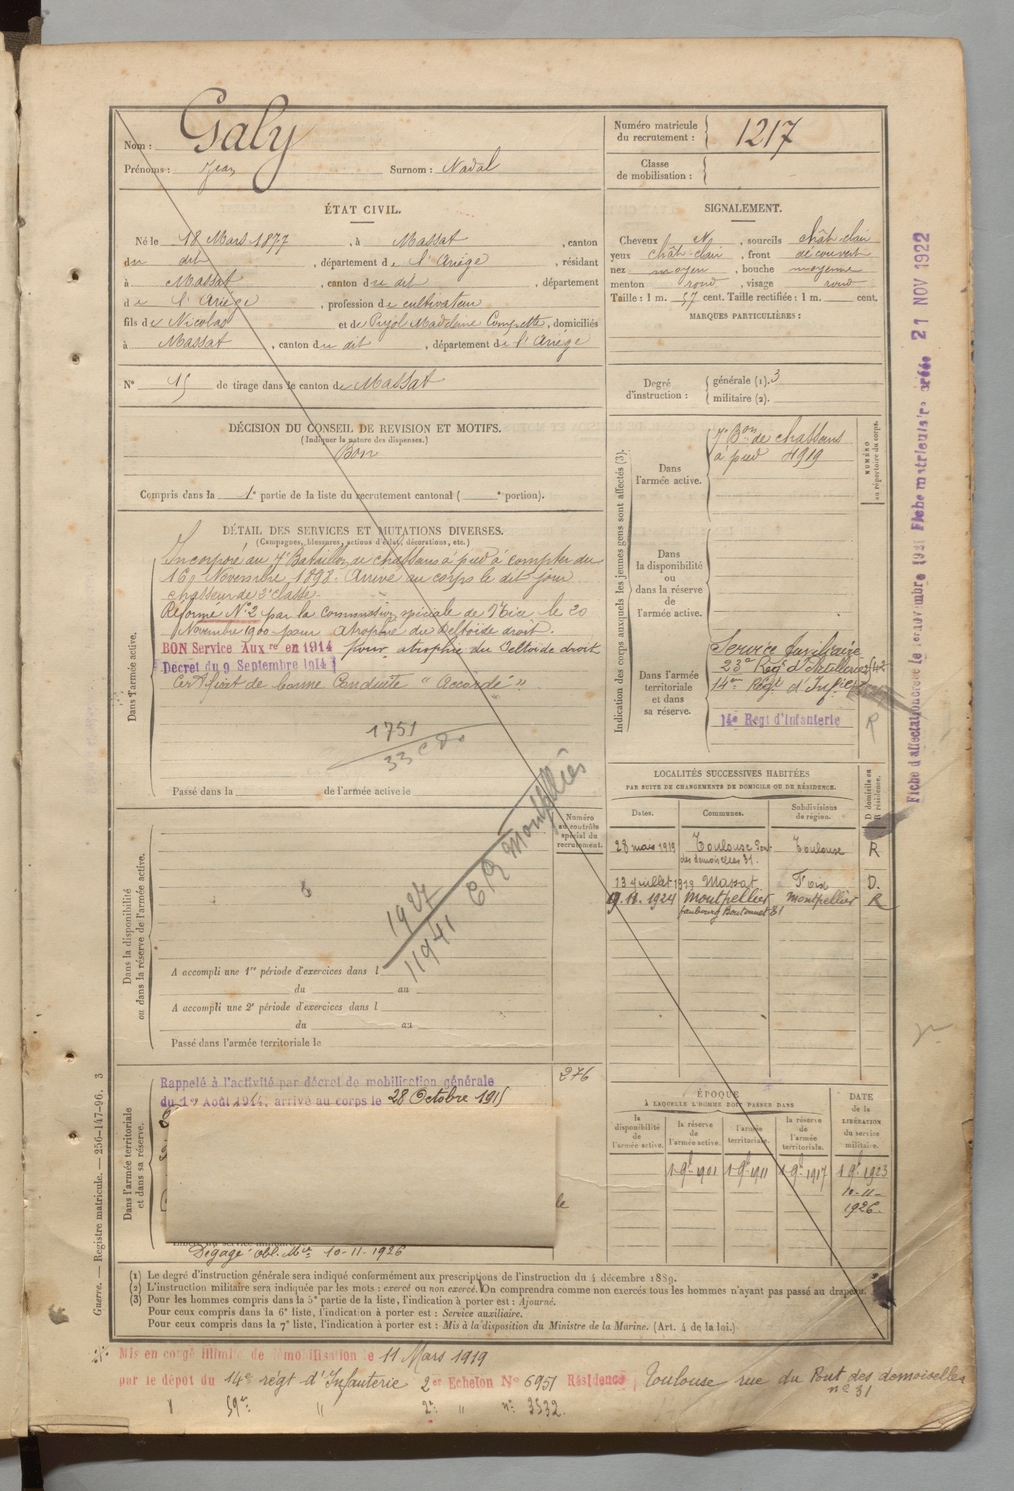 Nom : Galy
Prénoms : Jean Surnom : Nadal
Numéro matricule du recrutement : 1217
Classe de mobilisation :
ÉTAT CIVIL.
Né le 18 Mars 1877, à Massat, canton
du dit, département de l'Ariège, résidant
à Massat, canton du dit, département
de l'Ariège, profession de cultivateur
fils de Nicolas et de Pujol Madeleine, domiciliés
à Massat, canton du dit, département de l'Ariège
N° 15 de tirage dans le canton de Massat
SIGNALEMENT.
Cheveux N, sourcils chât-clair
yeux chât-clair, front découvert
nez moyen, bouche moyenne
menton rond, visage rond
Taille : 1 m. 57 cent. Taille rectifiée : 1 m. cent.
MARQUES PARTICULIÈRES :
Degré d'instruction : générale (1). 3
militaire (2).
DÉCISION DU CONSEIL DE REVISION ET MOTIFS.
(Indiquer la nature des dispenses.)
Bon
Compris dans la 1e partie de la liste du recrutement cantonal ( e portion).
DÉTAIL DES SERVICES ET MUTATIONS DIVERSES.
(Campagnes, blessures, actions d'éclat, décorations, etc.)
Dans l'armée active.
Incorporé au 7e Bataillon de chasseurs à pied à compter du
16 Novembre 1898. Arrivé au corps le dit jour
chasseur de 2e classe.
Réformé N° 2 par la commission spéciale de Nice le 20
Novembre 1900 pour atrophie du deltoïde droit.
BON Service Auxre en 1914 pour atrophie du deltoïde droit
Décret du 9 Septembre 1914
Certificat de bonne Conduite "Accordé"
1751
33
Passé dans la de l'armée active le
Indication des corps auxquels les jeunes gens sont affectés (3).
NUMÉRO au répertoire du corps.
Dans l'armée active.
7e Bon de chasseurs
à pied 4919
Dans la disponibilité ou dans la réserve de l'armée active.
Dans l'armée territoriale et dans sa réserve.
Service Auxiliaire
23e Régt d'Artillerie
14me Régt d'Infie
14e Régt d'Infanterie
R
Fiche matriculaire créée 21 NOV 1922
LOCALITÉS SUCCESSIVES HABITÉES
PAR SUITE DE CHANGEMENTS DE DOMICILE OU DE RÉSIDENCE.
Dates. Communes. Subdivisions de région. D domicile ou R résidence.
28 mars 1919 Toulouse Pont des demoiselles 31. Toulouse R
13 Juillet 1919 Massat Foix D.
9.11.1924 Montpellier faubourg Boutonnet 81 Montpellier R
Dans la disponibilité ou dans la réserve de l'armée active.
Numéro au contrôle spécial du recrutement.
1927
11941
Montpellier
A accompli une 1re période d'exercices dans l
du au
A accompli une 2e période d'exercices dans l
du au
Passé dans l'armée territoriale le
Dans l'armée territoriale et dans sa réserve.
276
Rappelé à l'activité par décret de mobilisation générale
du 1er Août 1914, arrivé au corps le 28 Octobre 1915
Dégagé obl. Mres 10-11-1926
ÉPOQUE
À LAQUELLE L'HOMME DOIT PASSER DANS
la disponibilité de l'armée active.
la réserve de l'armée active.
l'armée territoriale.
la réserve de l'armée territoriale.
DATE de la LIBÉRATION du service militaire.
1 9bre 1901 1 9bre 1911 1 9bre 1917 1 9bre 1923
10-11-1926
Guerre. — Registre matricule. — 256-147-96. 3
(1) Le degré d'instruction générale sera indiqué conformément aux prescriptions de l'instruction du 4 décembre 1889.
(2) L'instruction militaire sera indiquée par les mots : exercé ou non exercé. On comprendra comme non exercés tous les hommes n'ayant pas passé au drapeau.
(3) Pour les hommes compris dans la 5e partie de la liste, l'indication à porter est : Ajourné.
Pour ceux compris dans la 6e liste, l'indication à porter est : Service auxiliaire.
Pour ceux compris dans la 7e liste, l'indication à porter est : Mis à la disposition du Ministre de la Marine. (Art. 4 de la loi.)
Mis en congé illimité de démobilisation le 11 Mars 1919
par le dépôt du 14e régt d'Infanterie 2e Echelon No 6951 Résidence, Toulouse rue du Pont des demoiselles
n° 31
59e " 2e " n° 3532